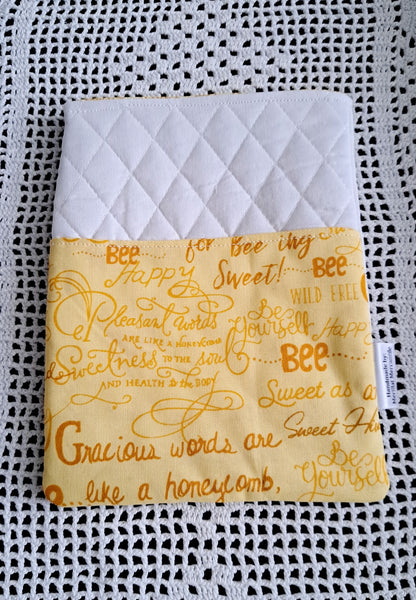 BEE for Bee ing
Happy Sweet! BEE
WILD FREE
Pleasant words Be Yourself Happy
ARE LIKE A HONEYCOMB
Sweetness TO THE soul BEE
AND HEALTH to the BODY Sweet as
Gracious words are Sweet
like a honeycomb, Be Yourself
Handmade by